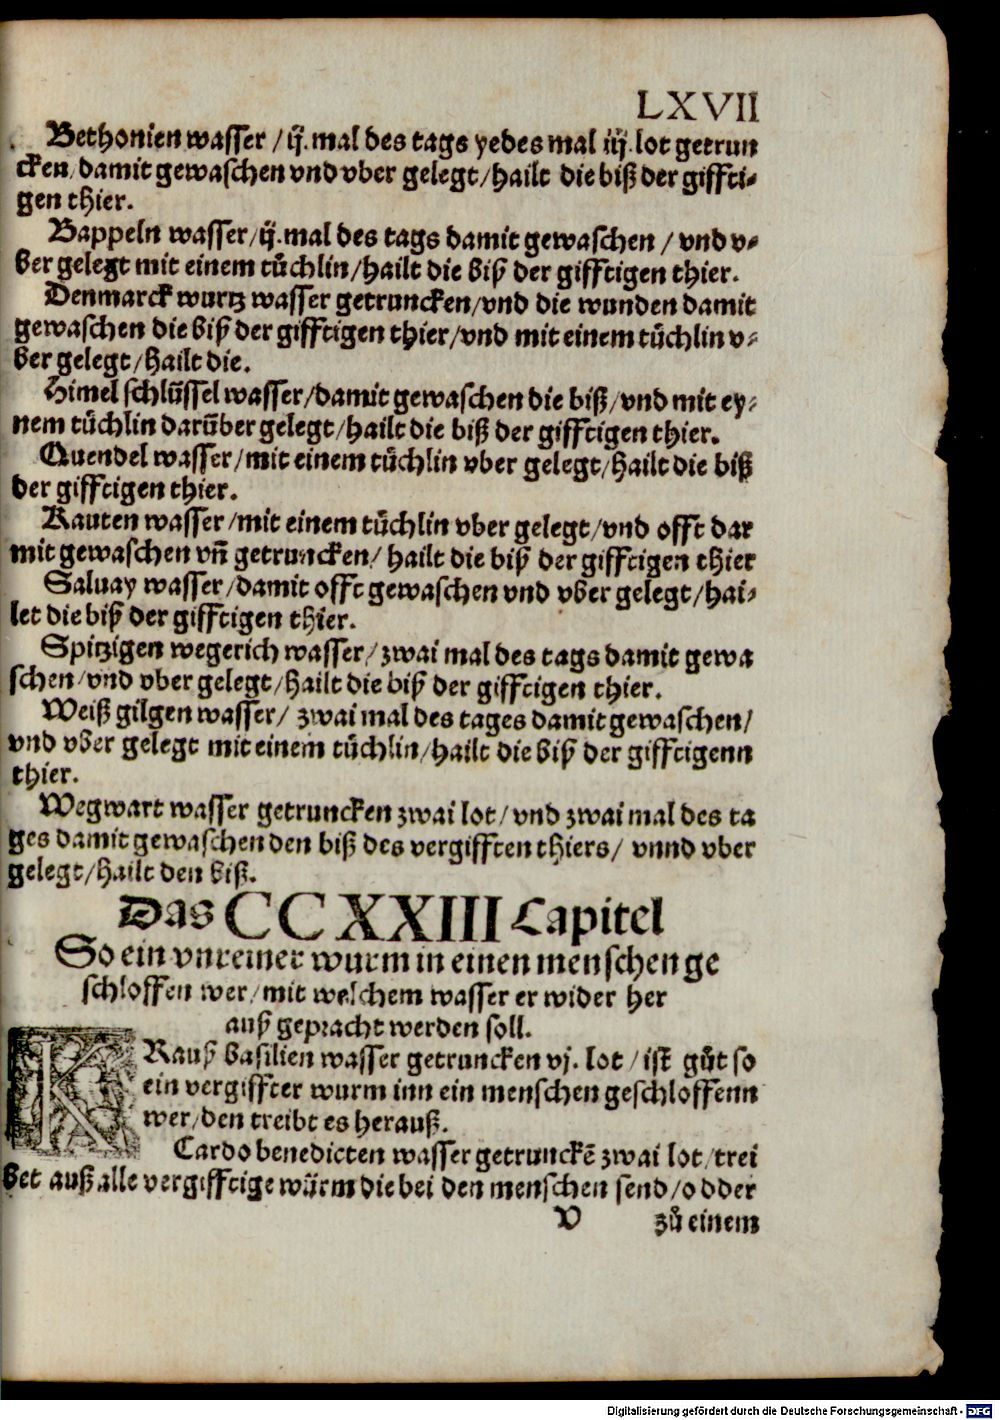 LXVII
Bethonien wasser / ij. mal des tags yedes mal iij. lot getrun
cken / damit gewaschen vnd vber gelegt / hailt die biß der giffti⸗
gen thier.
Bappeln wasser / ij. mal des tags damit gewaschen / vnd v⸗
ber gelegt mit einem tuͤchlin / hailt die biß der gifftigen thier.
Denmarck wurtz wasser getruncken / vnd die wunden damit
gewaschen die biß der gifftigen thier / vnd mit einem tuͤchlin v⸗
ber gelegt / hailt die.
Himel schlüssel wasser / damit gewaschen die biß / vnd mit ey⸗
nem tuͤchlin darüber gelegt / hailt die biß der gifftigen thier.
Quendel wasser / mit einem tuͤchlin vber gelegt / hailt die biß
der gifftigen thier.
Rauten wasser / mit einem tuͤchlin vber gelegt / vnd offt dar
mit gewaschen vñ getruncken / hailt die biß der gifftigen thier
Saluay wasser / damit offt gewaschen vnd vber gelegt / hai⸗
let die biß der gifftigen thier.
Spitzigen wegerich wasser / zwai mal des tags damit gewa
schen / vnd vber gelegt / hailt die biß der gifftigen thier.
Weiß gilgen wasser / zwai mal des tages damit gewaschen /
vnd vber gelegt mit einem tuͤchlin / hailt die biß der gifftigenn
thier.
Wegwart wasser getruncken zwai lot / vnd zwai mal des ta
ges damit gewaschen den biß des vergifften thiers / vnnd vber
gelegt / hailt den biß.
Das CCXXIII Capitel
So ein vnreiner wurm in einen menschen ge
schloffen wer / mit welchem wasser er wider her
auß gepracht werden soll.
KRauß basilien wasser getruncken vj. lot / ist guͦt so
ein vergiffter wurm inn ein menschen geschloffenn
wer / den treibt es herauß.
Cardo benedicten wasser getrunckē zwai lot / trei
bet auß alle vergifftige würm die bei den menschen send / odder
V zuͦ einem
Digitalisierung gefördert durch die Deutsche Forschungsgemeinschaft - DFG